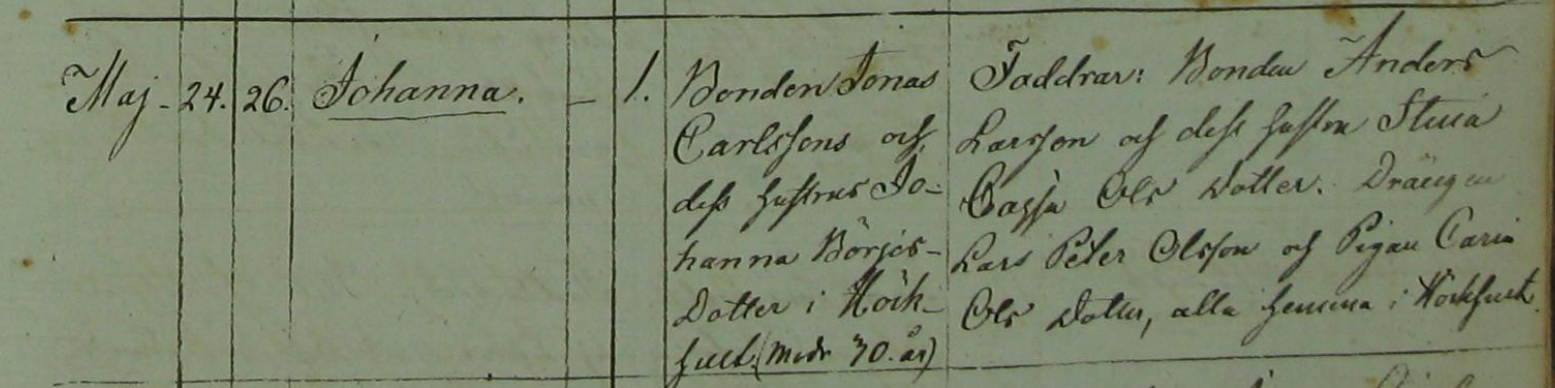 Maj - 24. 26. Johanna. — 1. Bonden Jonas
Carlssons och
dess hustrus Jo-
hanna Börjes-
Dotter i Höck-
hult. (modr 30. år)
Faddrar: Bonden Anders
Larsson och dess hustru Stina
Cajsa Ols Dotter. Drängen
Lars Peter Olsson och Pigan Carin
Ols Dotter, alla hemma i Höckhult.